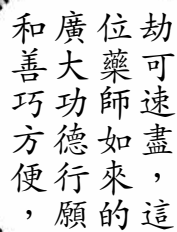 劫可速盡，這
位藥師如來的
廣大功德行願
和善巧方便，